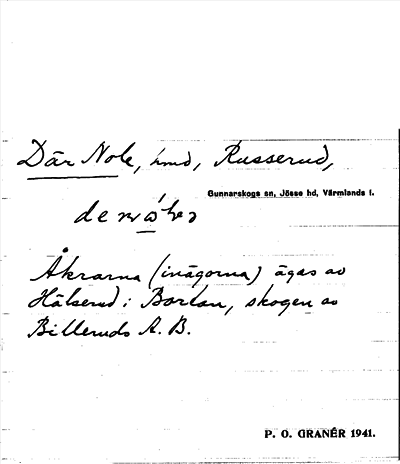 Där Nole, hmd, Russerud,
Gunnarskogs sn, Jösse hd, Värmlands l.
Åkrarna (inägorna) ägas av
Hälserud i Bortan, skogen av
Billeruds A. B.
P. O. GRANÉR 1941.